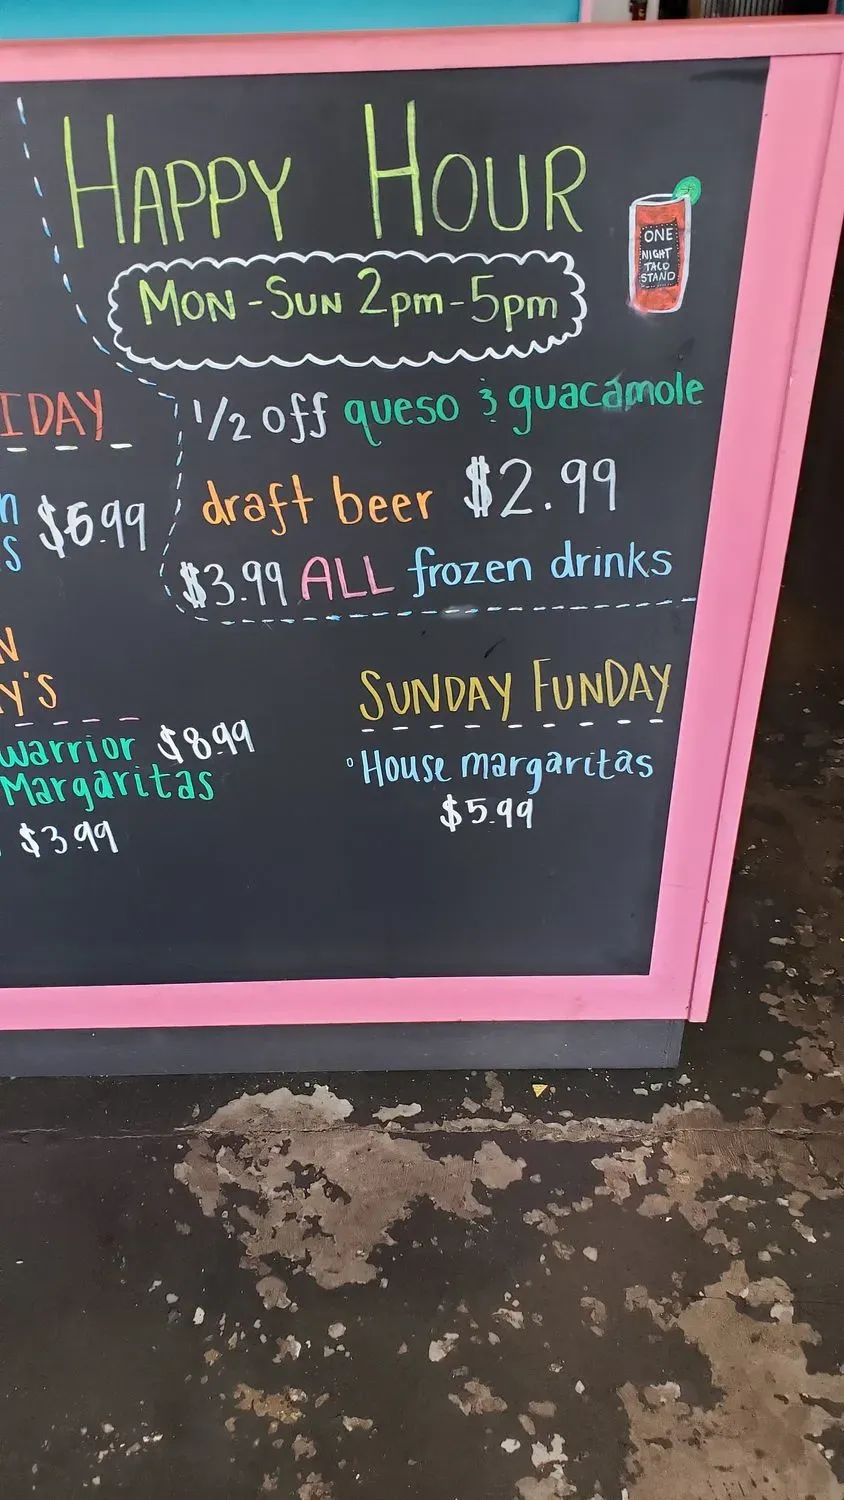 HAPPY HOUR
MON-SUN 2pm-5pm
ONE
NIGHT
TACO
STAND
1/2 off queso & guacamole
draft beer $2.99
$3.99 ALL frozen drinks
IDAY
n $6.99
S
N
Y'S
warrior $8.99
Margaritas
$3.99
SUNDAY FUNDAY
° House margaritas
$5.99